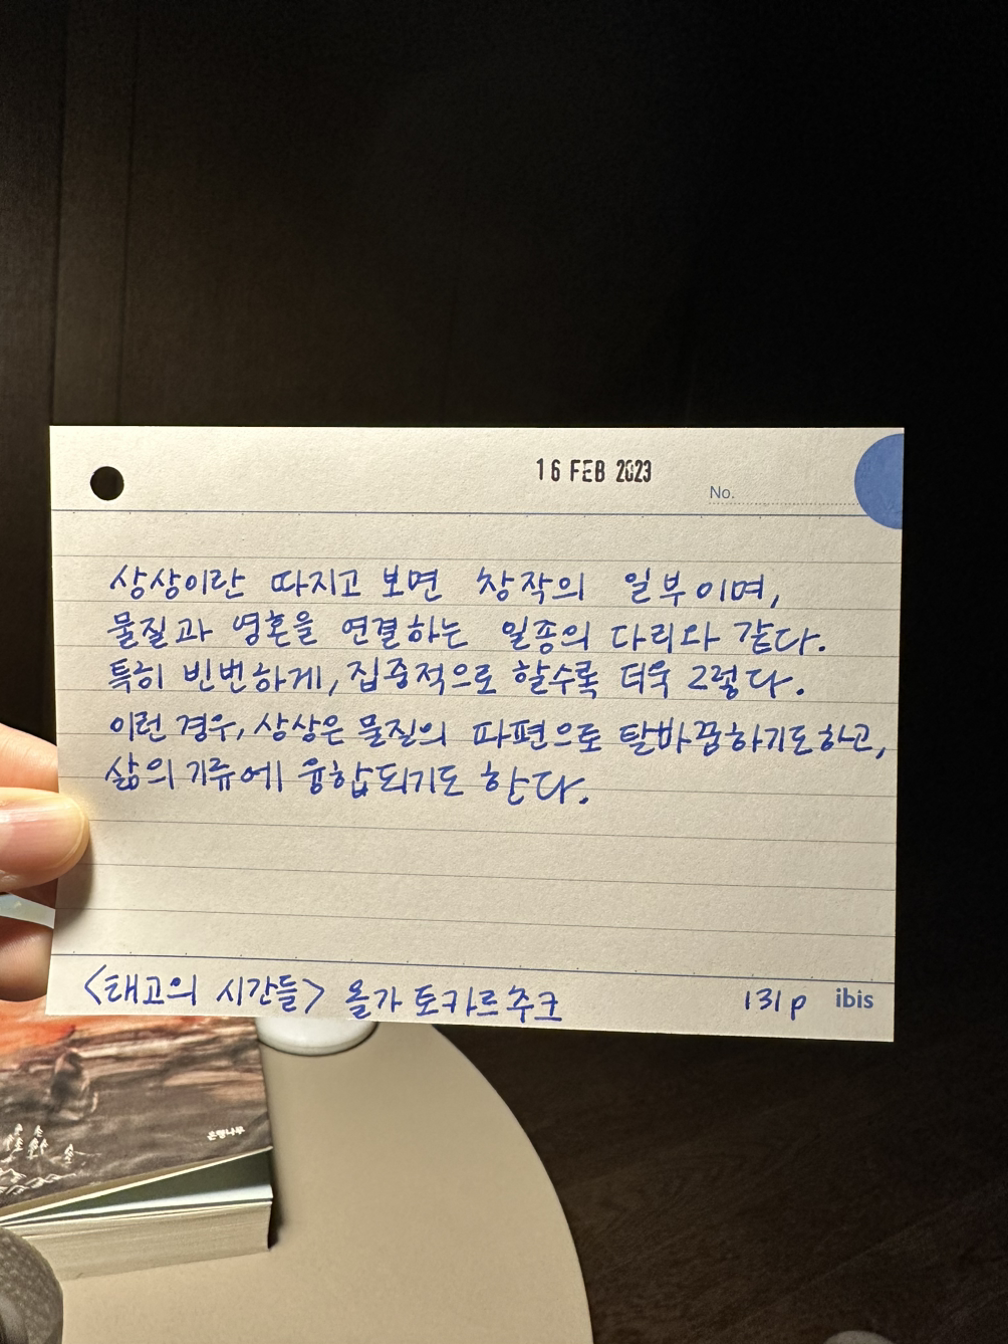 16 FEB 2023
No.
상상이란 따지고 보면 창작의 일부이며,
물질과 영혼을 연결하는 일종의 다리와 같다.
특히 빈번하게, 집중적으로 할수록 더욱 그렇다.
이런 경우, 상상은 물질의 파편으로 탈바꿈하기도하고,
삶의 기류에 융합되기도 한다.
<태고의 시간들> 올가 토카르추크 131p ibis
은행나무